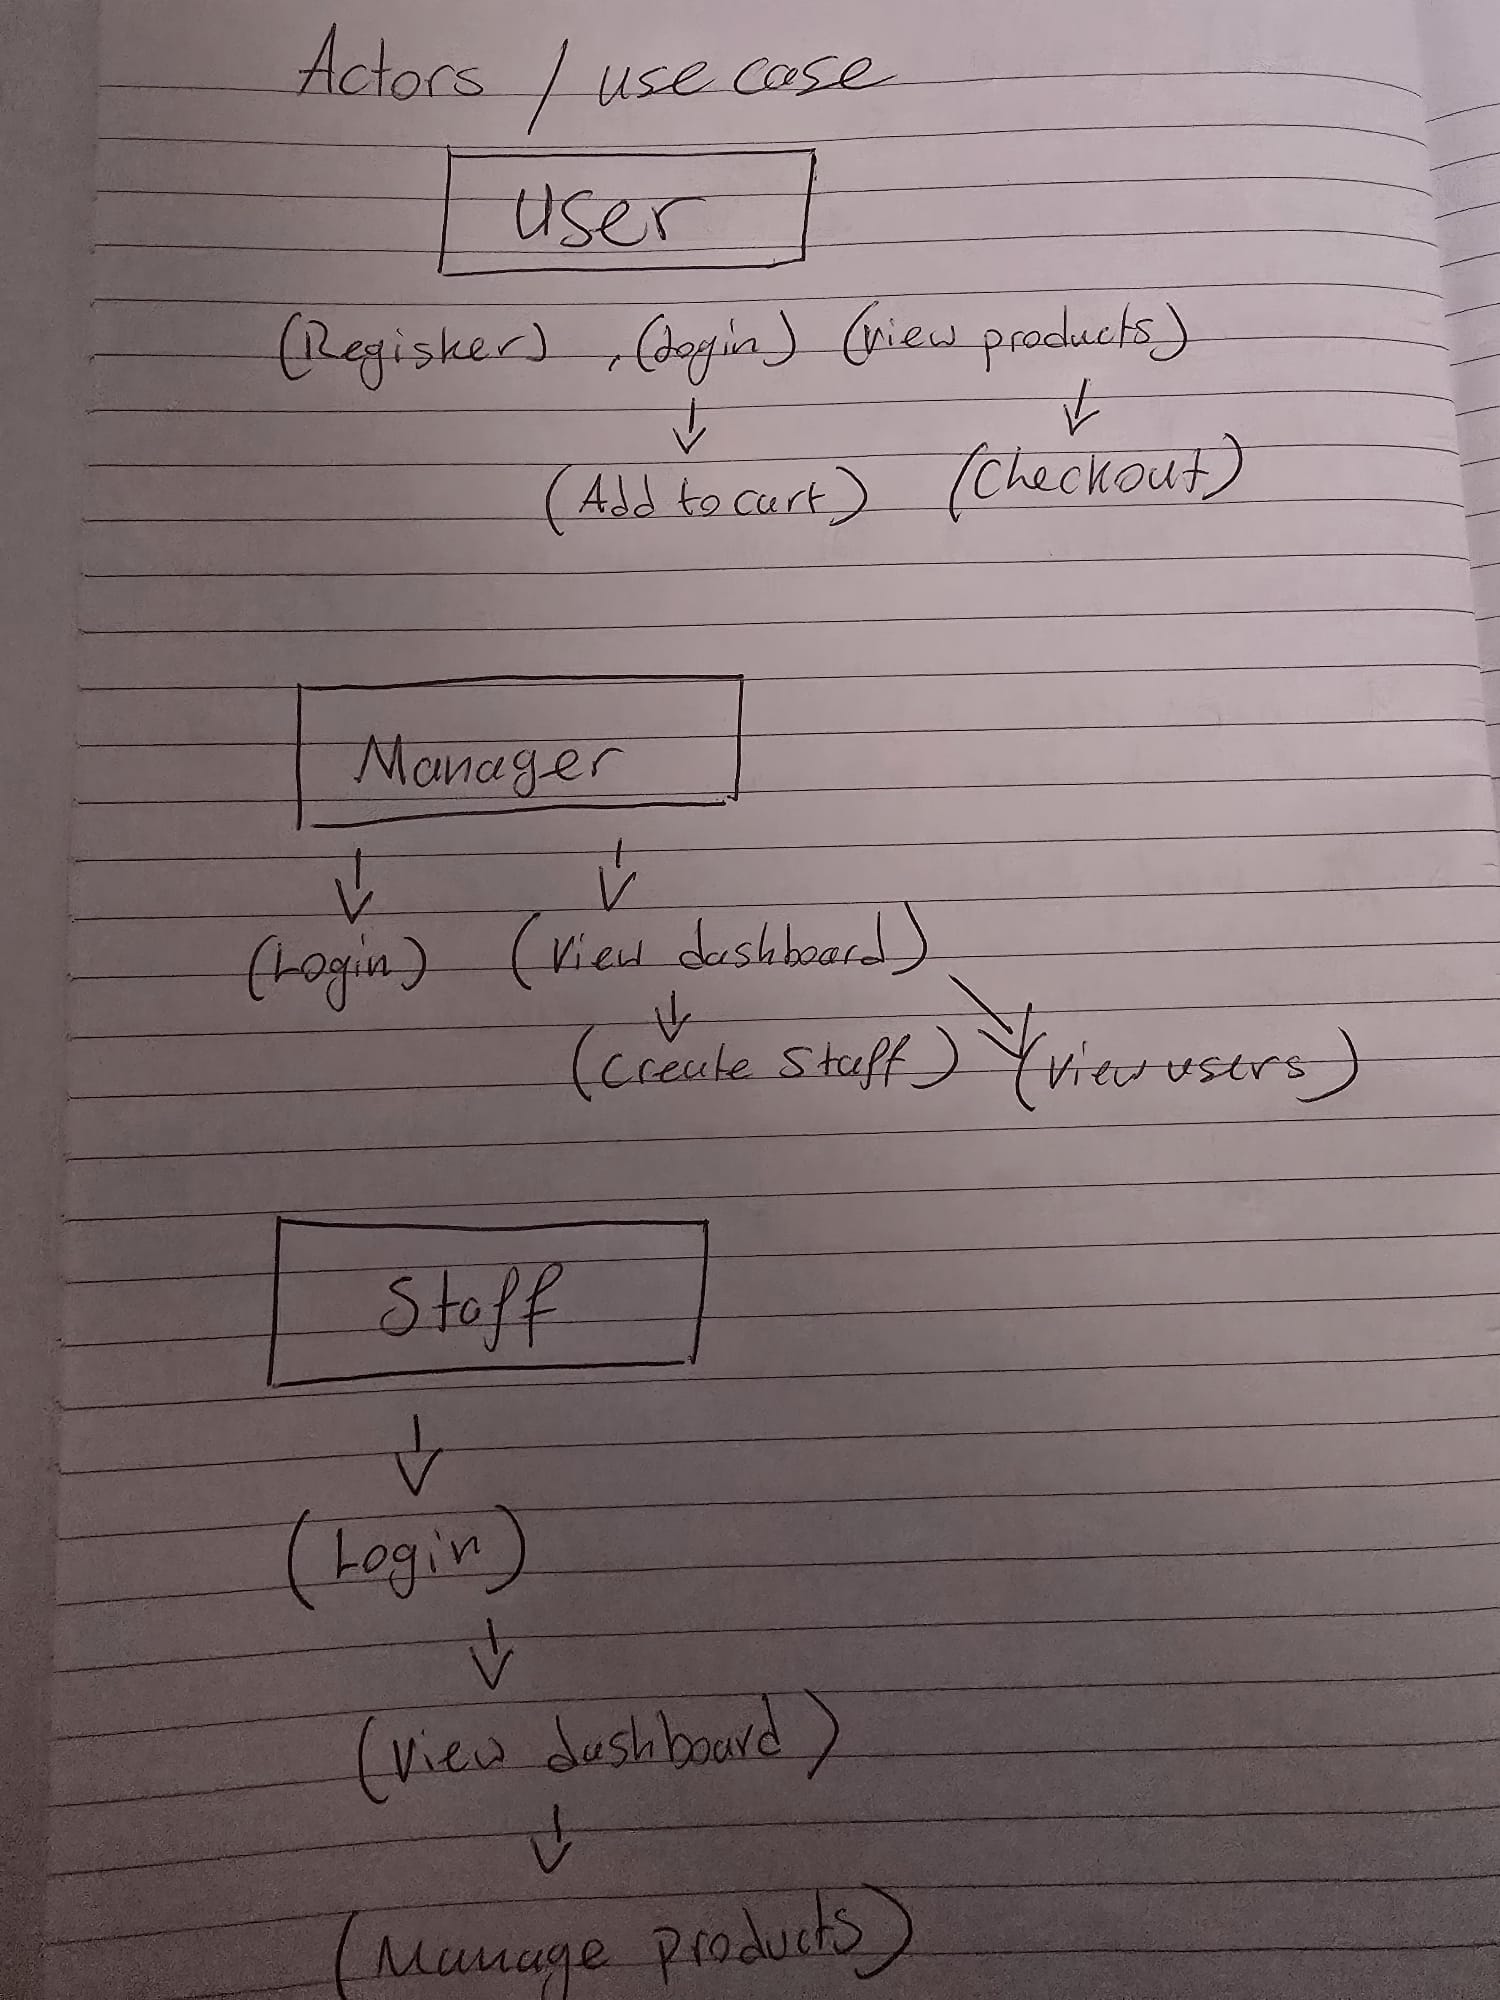 Actors / use case
User
(Register) , (Login) (view products)
(Add to cart) (Checkout)
Manager
(Login) (View dashboard)
(Create Staff) (View users)
Staff
(Login)
(View dashboard)
(Manage products)